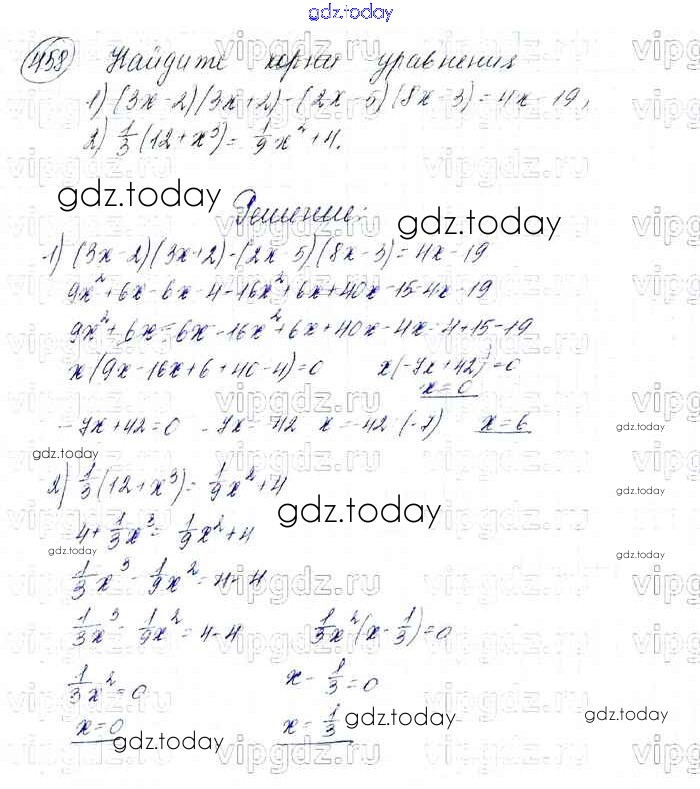 gdz.today
458 Найдите корни уравнения
1) (3x-2)(3x+2)-(2x-5)(8x-3)=4x-19,
2) 1/3(12+x³)=1/9x²+4.
gdz.today
Решение:
gdz.today
1) (3x-2)(3x+2)-(2x-5)(8x-3)=4x-19
9x²+6x-6x-4-16x²+6x+40x-15-4x-19
9x²+6x=6x-16x²+6x+40x-4x-4+15-19
x(9x-16x+6+40-4)=0 x(-7x+42)=0
x=0
-7x+42=0 -7x=-42 x=-42:(-7) x=6
gdz.today
gdz.today
2) 1/3(12+x³)=1/9x²+4
gdz.today
gdz.today
4+1/3x³=1/9x²+4
gdz.today
gdz.today
1/3x³-1/9x²=4-4
1/3x³-1/9x²=4-4 1/3x²(x-1/3)=0
1/3x²=0 x-1/3=0
x=0 x=1/3
gdz.today
gdz.today
gdz.today
vipgdz.ru